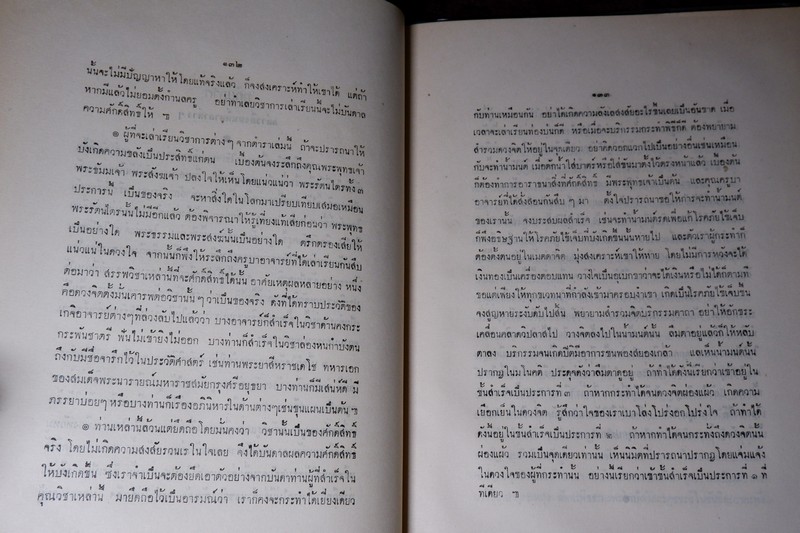 ๑๓๒
นั้นจะไม่มีปัญญาหาให้โดยแท้จริงแล้ว ก็จงสงเคราะห์ทำให้เขาได้ แต่ถ้า
หากมีแล้วไม่ยอมตั้งกำนลครู อย่าทำเลยวิชาการเล่าเรียนนี้จะไม่บันดาล
ความศักดิ์สิทธิ์ให้ ฯ
๏ ผู้ที่จะเล่าเรียนวิชาการต่างๆจากตำราเล่มนี้ ถ้าจะปรารถนาให้
บังเกิดความขลังเป็นประสิทธิ์แก่ตน เบื้องต้นจงระลึกถึงคุณพระพุทธเจ้า
พระธัมมเจ้า พระสงฆเจ้า ปลงใจให้เห็นโดยแน่แน่วว่า พระรัตนไตรทั้ง ๓
ประการนี้ เป็นของจริง จะหาสิ่งใดในโลกมาเปรียบเทียบเสมอเหมือน
พระรัตนไตรนั้นไม่มีอีกแล้ว ต้องพิจารณาให้รู้เที่ยงแท้เสียก่อนว่า พระพุทธ
เป็นอย่างใด พระธรรมและพระสงฆ์นั้นเป็นอย่างใด ตรึกตรองเสียให้
แน่วแน่ในดวงใจ จากนั้นก็พึงให้ระลึกถึงครูบาอาจารย์ที่ได้เล่าเรียนกันสืบ
ต่อมาว่า สรรพวิชาเหล่านี้ที่จะศักดิ์สิทธิ์ได้นั้น อาศัยเหตุผลหลายอย่าง หนึ่ง
คือดวงจิตตั้งมั่นเคารพต่อวิชานั้นๆว่าเป็นของจริง ดังที่ได้ทราบประวัติของ
เกจิอาจารย์ต่างๆที่ล่วงลับไปแล้วว่า บางอาจารย์ก็สำเร็จในวิชาด้านคงกระ
กระพันชาตรี ฟันไม่เข้ายิงไม่ออก บางท่านก็สำเร็จในวิชาล่องหนกำบังตน
ถึงกับมีชื่อจารึกไว้ในประวัติศาสตร์ เช่นท่านพระยาสีหราชเดโช ทหารเอก
ของสมเด็จพระนารายณ์มหาราชสมัยกรุงศรีอยุธยา บางท่านก็มีเสน่ห์ดี มี
ภรรยาบ่อยๆ หรือบางท่านก็เรืองอภินิหารในด้านต่างๆเช่นขุนแผนเป็นต้น ฯ
๏ ท่านเหล่านี้ล้วนแต่ยึดถือโดยมั่นคงว่า วิชานั้นเป็นของศักดิ์สิทธิ์
จริง โดยไม่เกิดความสงสัยรวนเรในใจเลย จึงได้บันดาลผลความศักดิ์สิทธิ์
ให้บังเกิดขึ้น ซึ่งเราจำเป็นจะต้องยึดเอาตัวอย่างจากบันดาท่านผู้ที่สำเร็จใน
คุณวิชาเหล่านี้ มายึดถือไว้เป็นอารมณ์ว่า เราก็คงจะกระทำได้เยี่ยงเดียว
๑๓๓
กับท่านเหมือนกัน อย่าได้เกิดความลังเลสงสัยอะไรขึ้นเลยเป็นอันขาด เมื่อ
เวลาจะเล่าเรียนท่องบ่นก็ดี หรือเมื่อจะบริกรรมกระทำพิธีก็ดี ต้องพยายาม
สำรวมดวงจิตให้อยู่ในจุดเดียว อย่าคิดวอกแวกไปเป็นอย่างอื่นเช่นเหมือน
กับจะทำน้ำมนต์ เมื่อตักน้ำใส่บาตร์หรือใส่ขันมาตั้งไว้ตรงหน้าแล้ว เบื้องต้น
ก็ต้องทำการอาราธนาสิ่งศักดิ์สิทธิ์ มีพระพุทธเจ้าเป็นต้น และคุณครูบา
อาจารย์ที่ได้สั่งสอนกันสืบ ๆ มา ตั้งใจปรารถนาขอให้การจะทำน้ำมนต์
ของเรานั้น จงบรรลุผลสำเร็จ เช่นจะทำน้ำมนต์รดเพื่อแก้โรคภัยไข้เจ็บ
ก็พึงอธิษฐานให้โรคภัยไข้เจ็บที่บังเกิดขึ้นนั้นหายไป และตัวเราผู้กระทำก็
ต้องตั้งตนอยู่ในเมตตาจิต มุ่งสงเคราะห์เขาให้หาย โดยไม่มีการหวังจะได้
เงินทองเป็นเครื่องตอบแทน วางใจเป็นอุเบกขาว่าจะได้เงินหรือไม่ได้ก็ตามที
ขอแต่เพียงให้ทุกขเวทนาที่กำลังเข้ามาครอบงำเขา เกิดเป็นโรคภัยไข้เจ็บนั้น
จงสูญหายระงับดับไปสิ้น พยายามสำรวมจิตบริกรรมคาถา อย่าให้อักขระ
เคลื่อนคลาดวิปลาสไป วางจิตลงไปในน้ำมนต์นั้น ลืมตาอยู่แล้วก็ให้หลับ
ตาลง บริกรรมจนเกิดปีติมีอาการขนพองสยองเกล้า แลเห็นน้ำมนต์นั้น
ปรากฏในมโนคติ ประดุจดังว่าลืมตาดูอยู่ ถ้าทำได้ดังนี้เรียกว่าเข้าอยู่ใน
ขั้นสำเร็จเป็นประการที่ ๓ ถ้าหากกระทำได้จนดวงจิตผ่องแผ้ว เกิดความ
เยือกเย็นในดวงจิต รู้สึกว่าใจของเราเบาโล่งโปร่งอกโปร่งใจ ถ้าทำได้
ดังนี้อยู่ในขั้นสำเร็จเป็นประการที่ ๒ ถ้าหากทำได้จนกระทั่งถึงดวงจิตนั้น
ผ่องแผ้ว รวมเป็นจุดเดียวเท่านั้น เห็นนิมิตที่ปรารถนาปรากฏโดยแจ่มแจ้ง
ในดวงใจของผู้ที่กระทำนั้น อย่างนี้เรียกว่าเข้าขั้นสำเร็จเป็นประการที่ ๑ ที
ทีเดียว ฯ